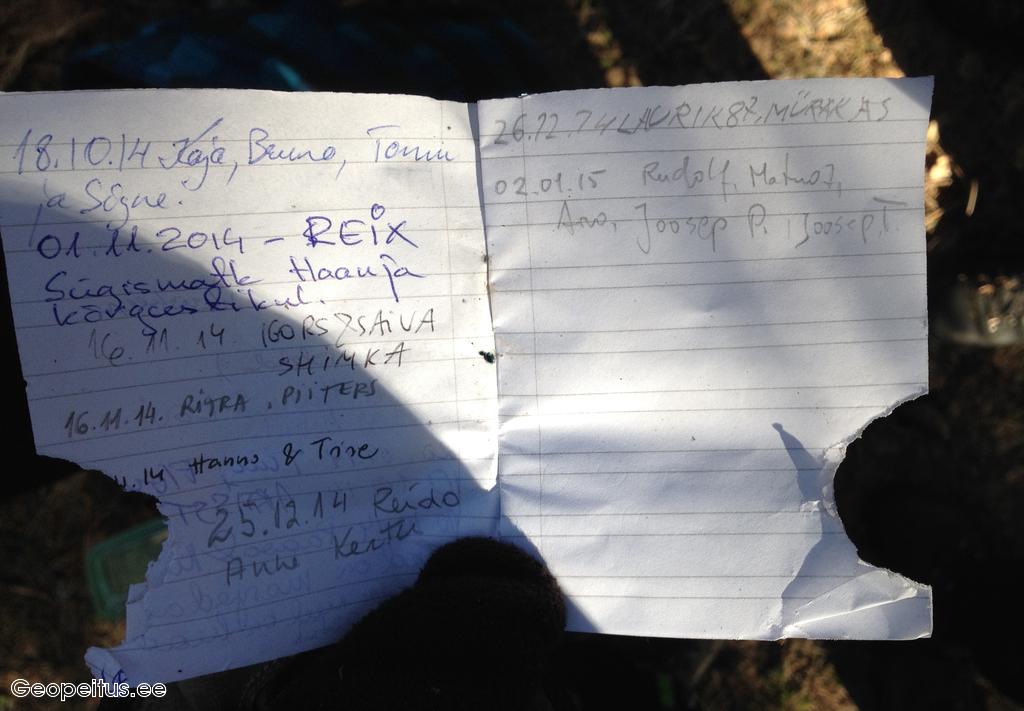 18.10.14 Kaja, Bruno, Tommi
ja Signe.
01.11.2014 – REIX
Sügismatk Haanja
kõrgustikul.
16.11.14. IGORS, SAIVA
SHIMKA
16.11.14. RITRA, PIITERS
.14 Hanno & Trise
25.12.14 Reido
Anne Kertu
26.12.14 LAURIK87, MÜRAKAS
02.01.15 Rudolf,
Aro, Joosep P., Joosep T.
Geopeitus.ee